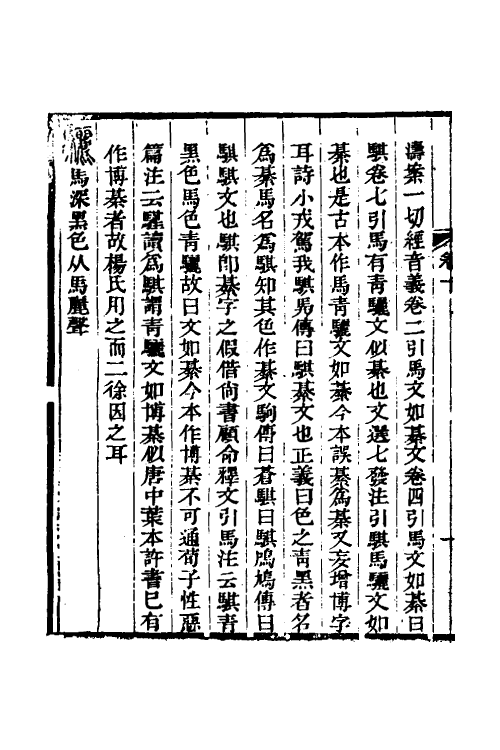 濤案一切經音義卷二引馬文如綦文卷四引馬文如綦曰
騏卷七引馬有青驪文似綦也文選七發注引騏馬驪文如
綦也是古本作馬青驪文如綦今本誤綦爲棊又妄增博字
耳詩小戎駕我騏馵傳曰騏綦文也正義曰色之青黑者名
爲綦馬名爲騏知其色作綦文駉傳曰蒼騏曰騏鳲鳩傳曰
騏騏文也騏卽綦字之假借尙書顧命釋文引馬注云騏青
黑色馬色青驪故曰文如綦今本作博棊不可通荀子性惡
篇注云驥讀爲騏謂青驪文如博棊似唐中葉本許書已有
作博棊者故楊氏用之而二徐因之耳
驪馬深黑色从馬麗聲
卷十